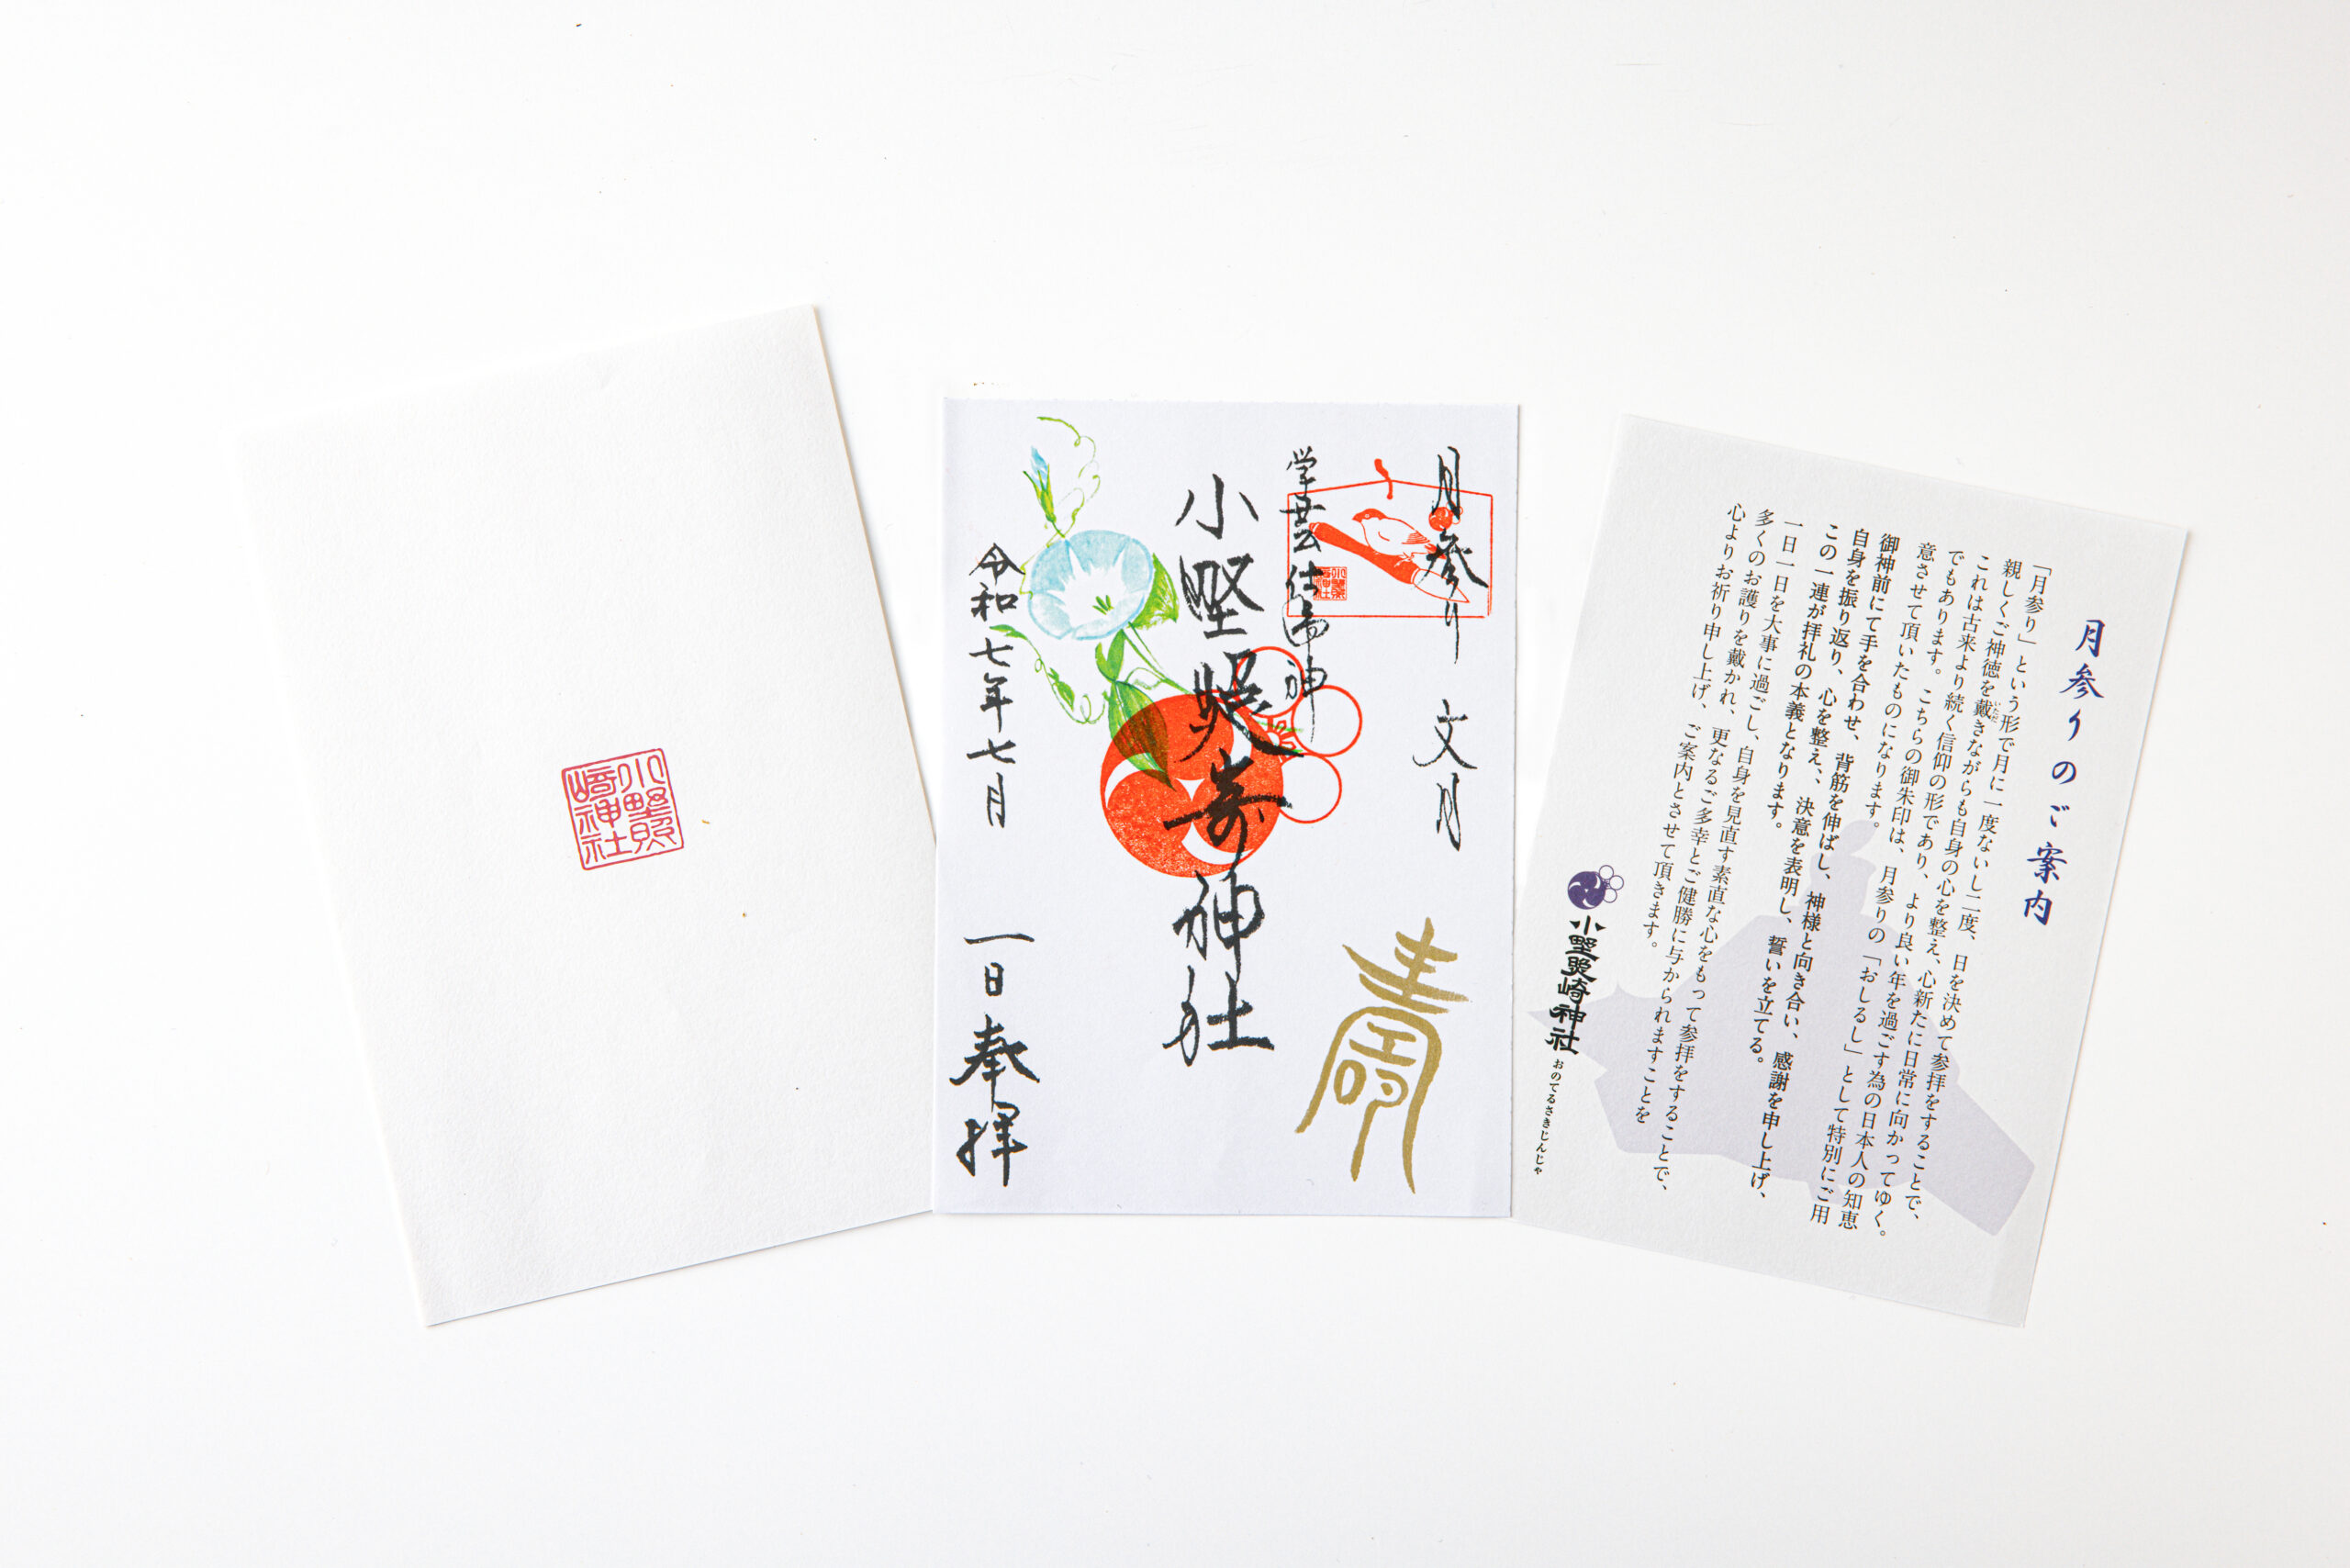 小野照
崎神社
月参り 文月
壽
学芸仕事神
小野照崎神社
令和七年七月一日奉拝
月参りのご案内
「月参り」という形で月に一度ないし二度、日を決めて参拝をすることで、
親しくご神徳を戴きながらも自身の心を整え、心新たに日常に向かってゆく。
これは古来より続く信仰の形であり、より良い年を過ごす為の日本人の知恵
でもあります。こちらの御朱印は、月参りの「おしるし」として特別にご用
意させて頂いたものになります。
御神前にて手を合わせ、背筋を伸ばし、神様と向き合い、感謝を申し上げ、
自身を振り返り、心を整え、、決意を表明し、誓いを立てる。
この一連が拝礼の本義となります。
一日一日を大事に過ごし、自身を見直す素直な心をもって参拝をすることで、
多くのお護りを戴かれ、更なるご多幸とご健勝に与かられますことを
心よりお祈り申し上げ、ご案内とさせて頂きます。
小野照崎神社 おのてるさきじんじゃ